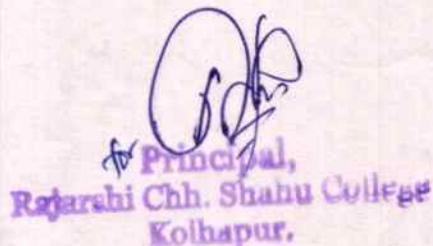 for Principal,
Rajarshi Chh. Shahu College
Kolhapur.